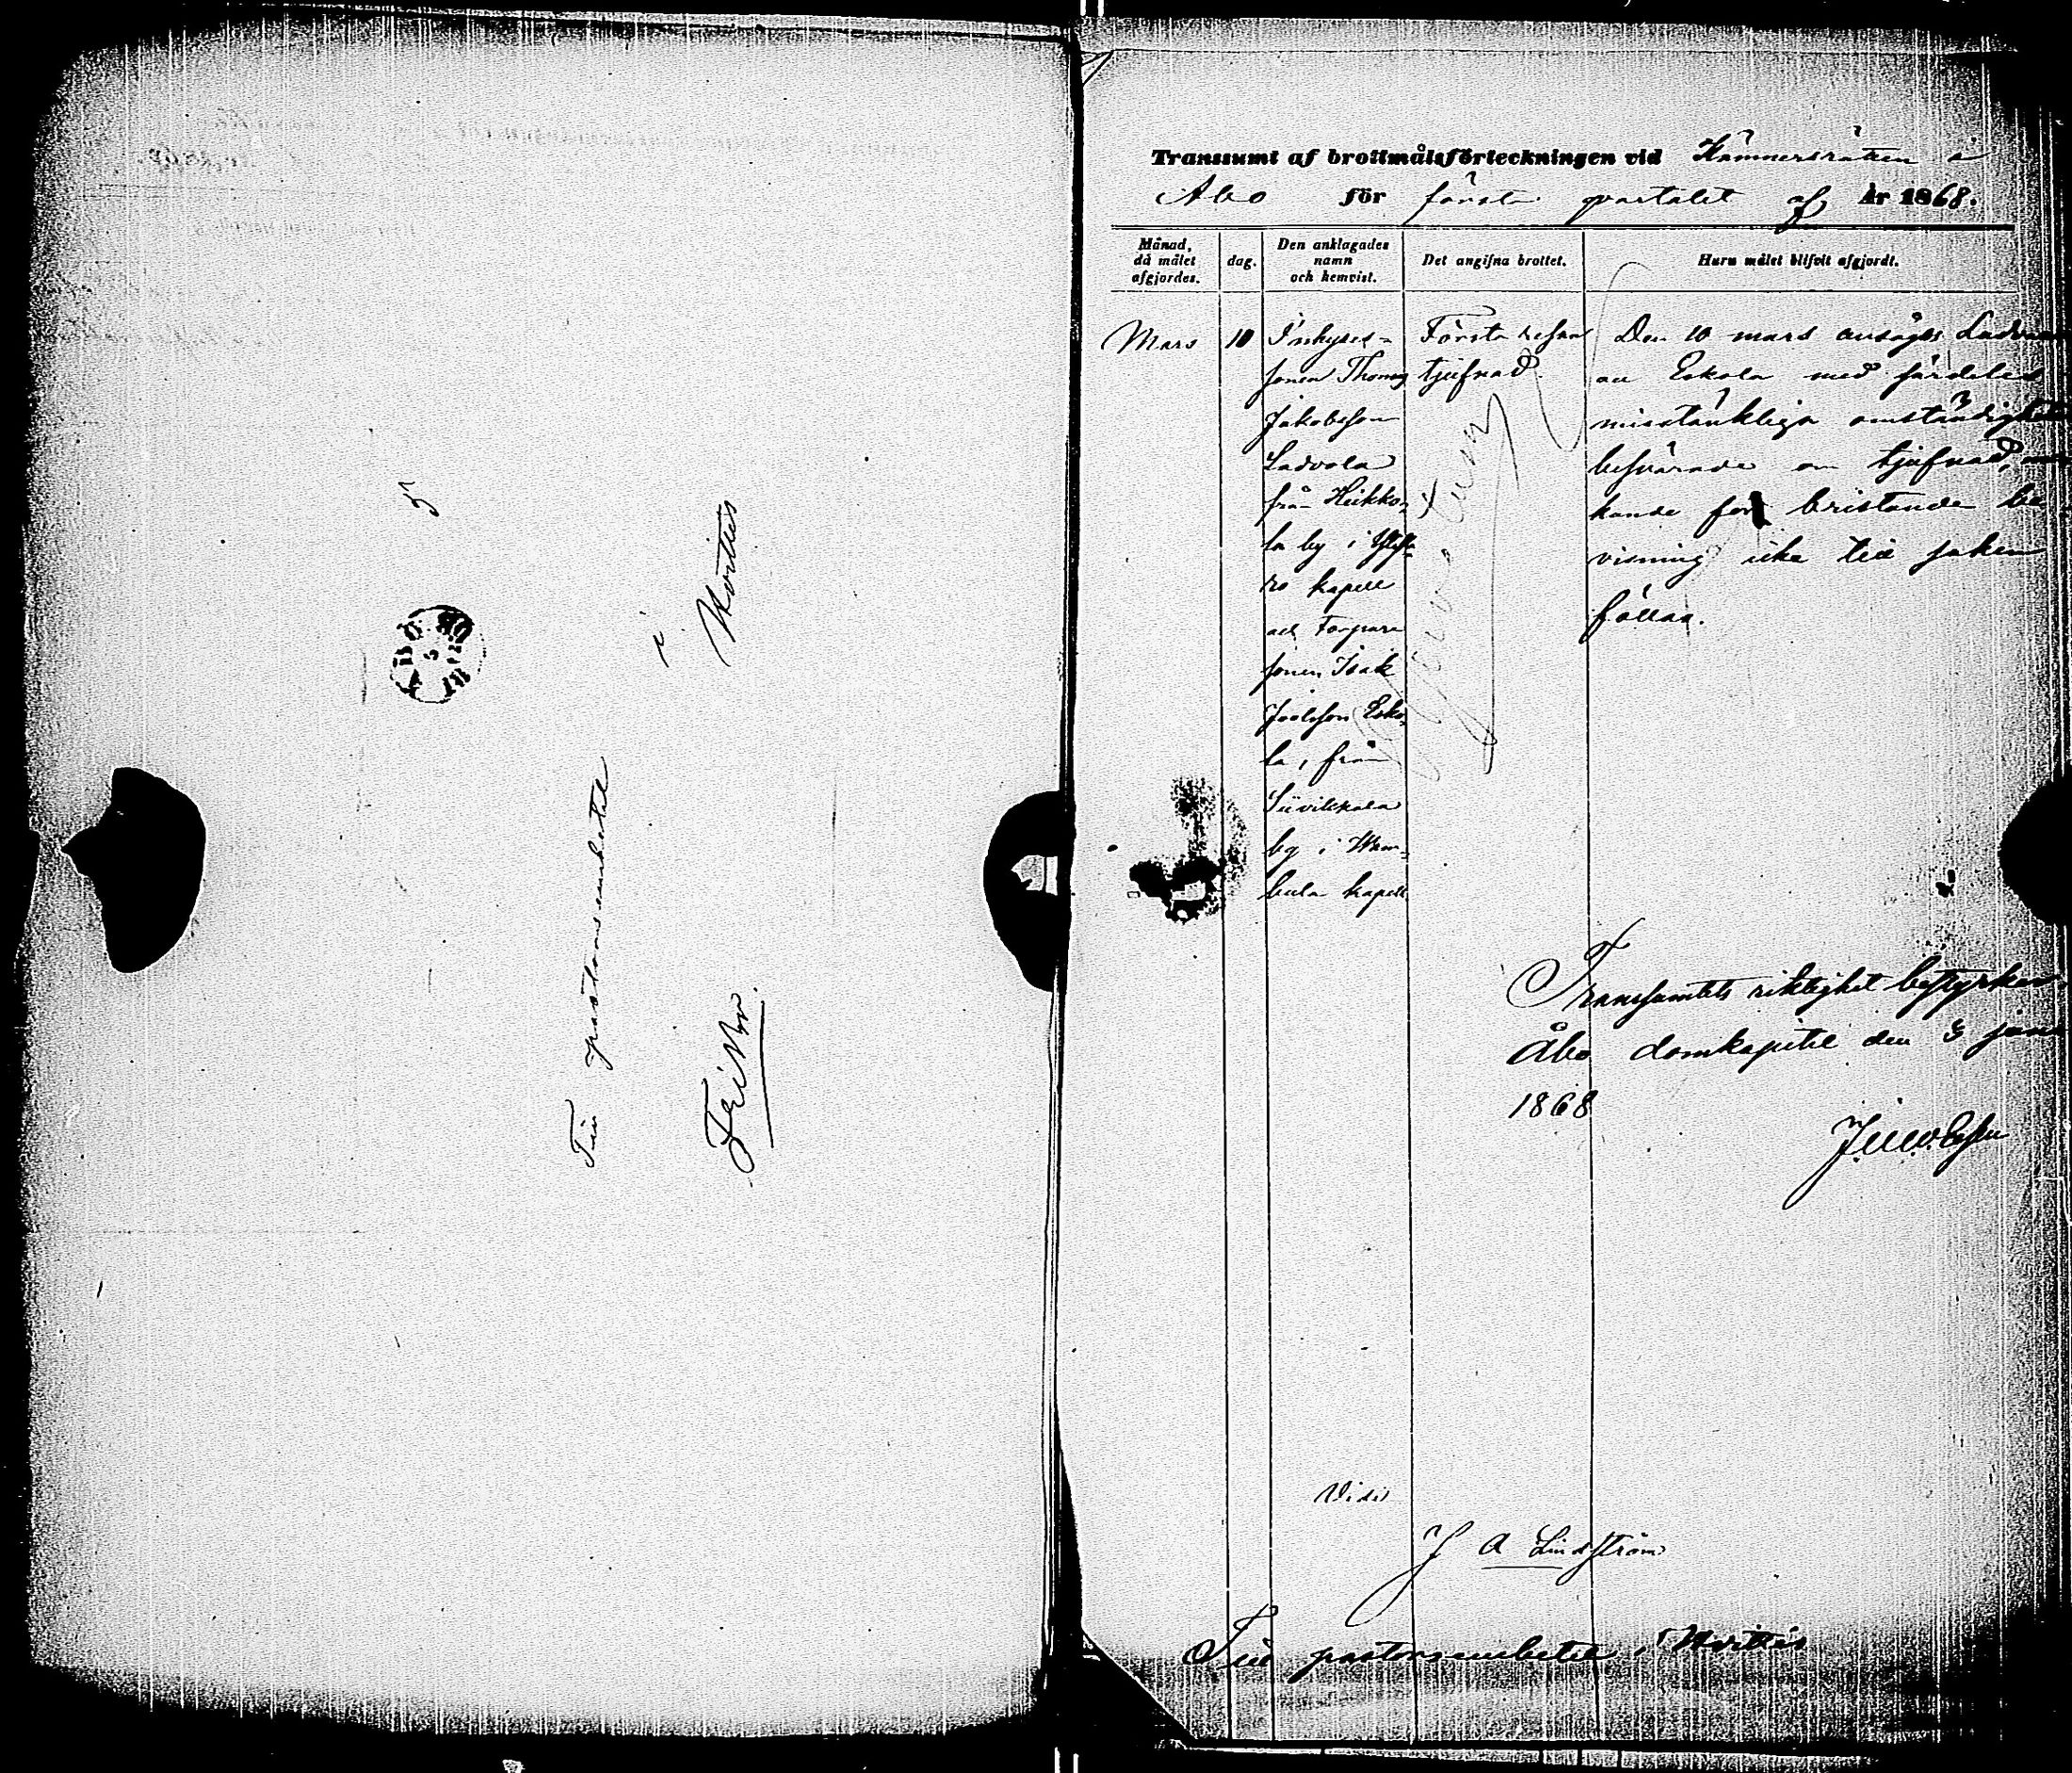 Till pastorsembetet
i
Hvittis
Fribr.
ÅBO
5
Transsumt af brottmålsförteckningen vid Kämnersrätten i
Åbo för första qvartalet af år 1868.
Månad, då målet afgjordes.
dag.
Den anklagades namn och hemvist.
Det angifna brottet.
Huru målet blifvit afgjordt.
Mars
10
Inhyses-
sonen Thomas
Jakobsson
Ladvola
från Heikko-
la by i
ro kapell
och Torpare
sonen Isak
Joelsson Esko-
la, från
by i Wam-
bula kapell
Första resan
tjufnad.
Den 10 mars ansågos Ladvola
och Eskola med färdeles
misstänkliga omständigheter
besvärade om tjufnad,
kunde för bristande be
visning icke till saken
fällas.
Transsumtets riktighet bestyrker
Åbo domkapitel den 3 juni
1868
Vidi
J A Lindström
Till pastorsembetet i Hvittis